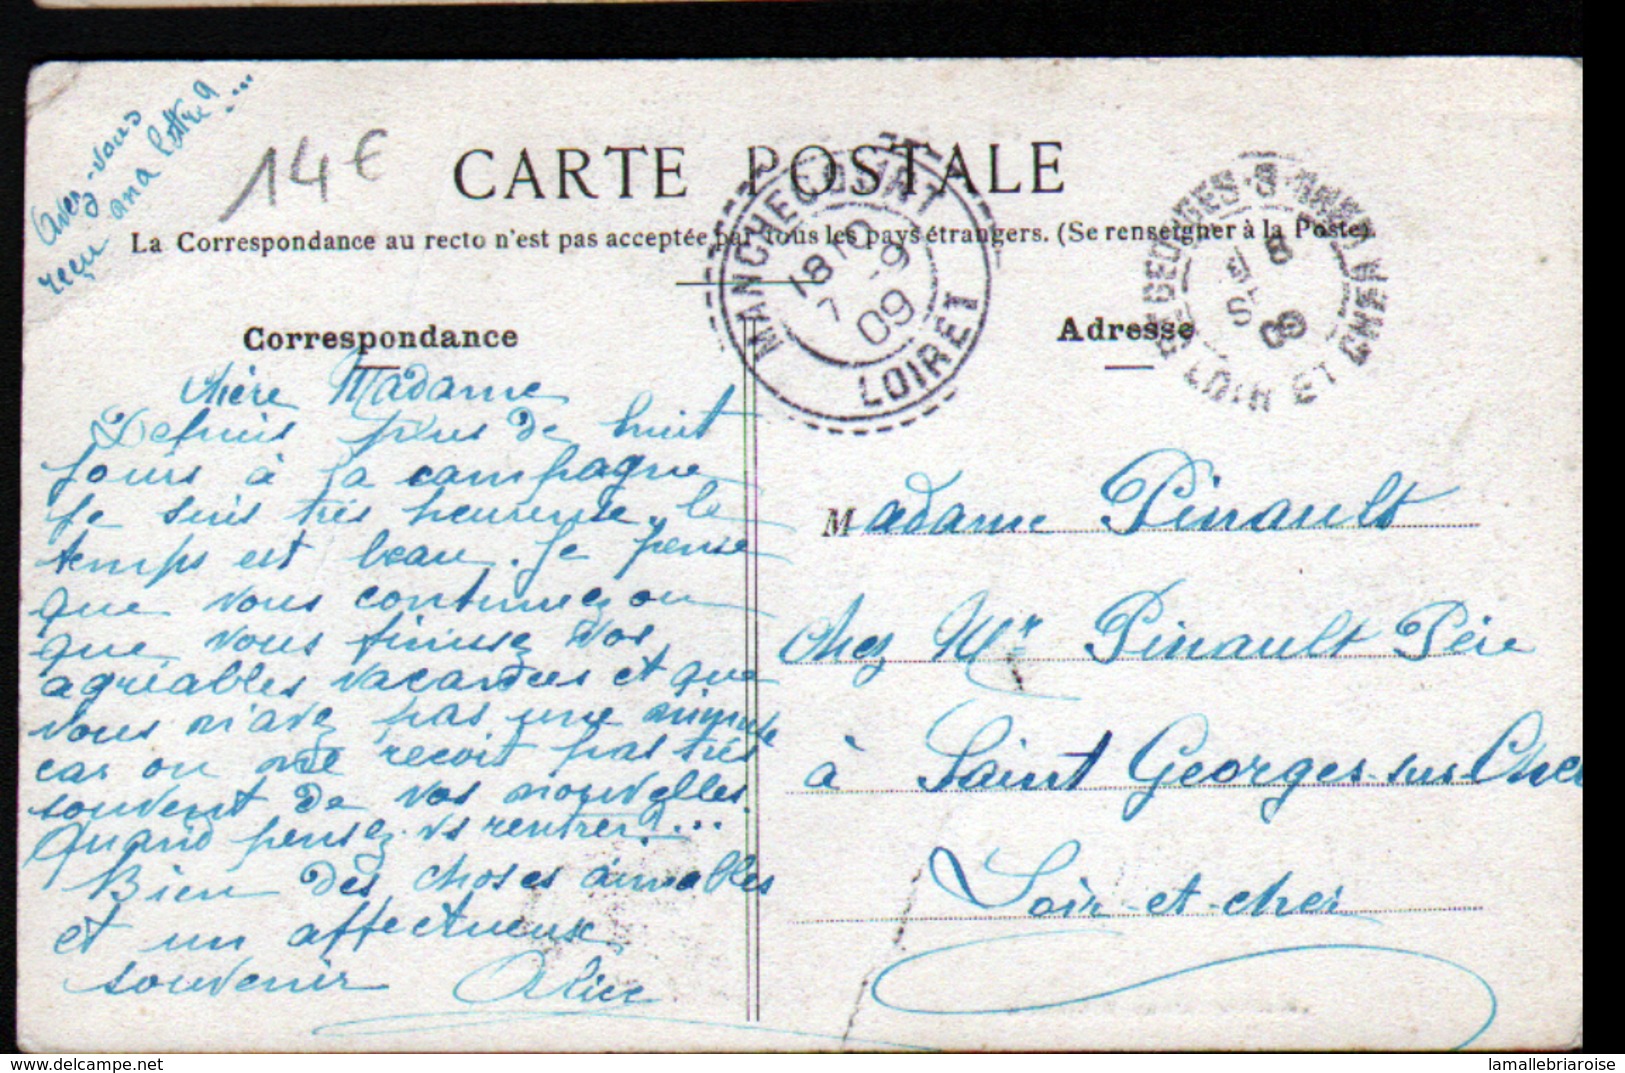 Avez-vous
reçu ma lettre?...
14€
CARTE POSTALE
La Correspondance au recto n'est pas acceptée par tous les pays étrangers. (Se renseigner à la Poste).
MANCHECOURT
18 10
7 -9
09
LOIRET
ST GEORGES-S-CHER
8
SEPT
09
LOIR ET CHER
Correspondance
Adresse
Chère Madame
Depuis plus de huit
jours à la campagne
je suis très heureuse, le
temps est beau. Je pense
que vous continuez ou
que vous finissez vos
agréables vacances et que
vous n'avez pas une minute
car on ne reçoit pas très
souvent de vos nouvelles.
Quand pensez-vs rentrer?...
Bien des choses aimables
et un affectueux
souvenir Alice
Madame Pinault
chez Mr Pinault Père
à Saint Georges-sur-Cher
Loir-et-cher
www.delcampe.net
lamallebriaroise